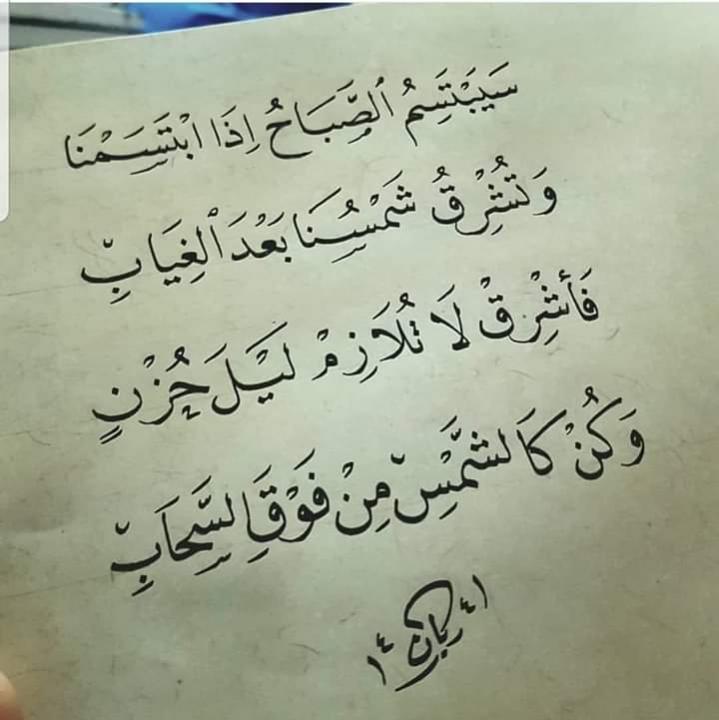 سَيَبْتَسِمُ ٱلصَّبَاحُ إِذَا ابْتَسَمْنَا
وَتُشْرِقُ شَمْسُنَا بَعْدَ ٱلْغِيَابِ
فَأَشْرِقْ لَا تُلَازِمْ لَيْلَ حُزْنٍ
وَكُنْ كَالشَّمْسِ مِنْ فَوْقِ السَّحَابِ